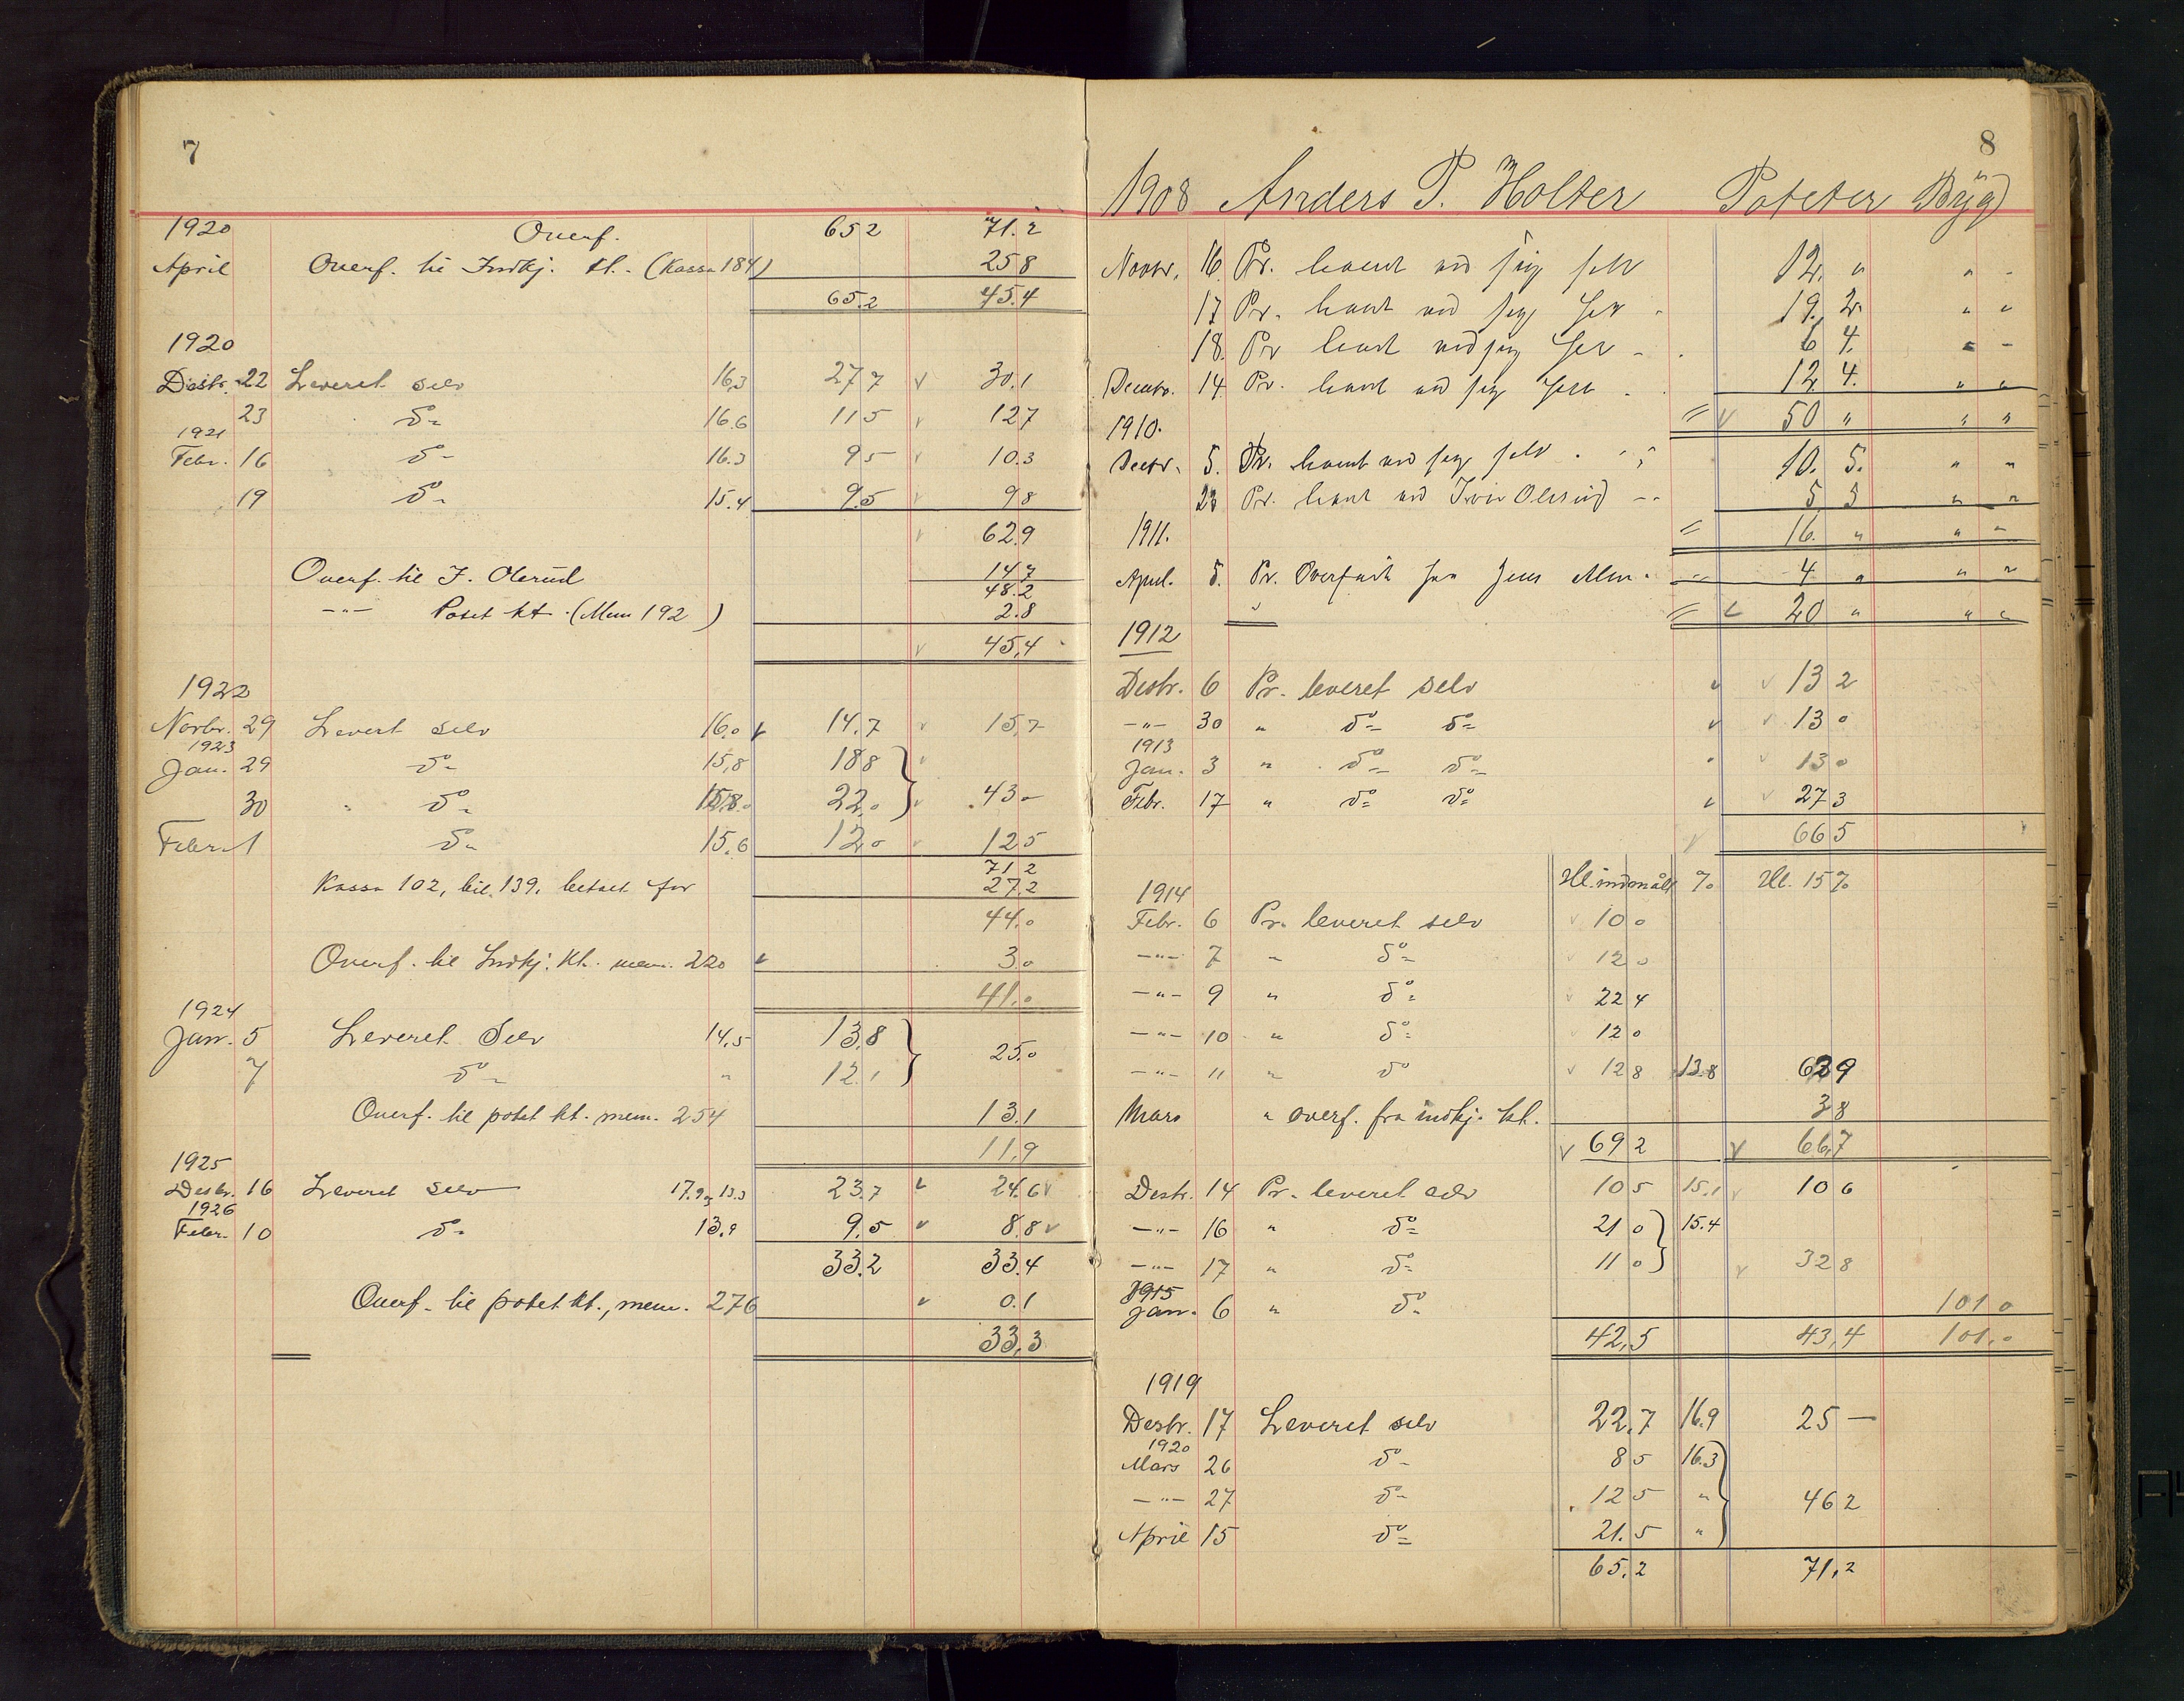 7
1920 Overf. 652 71.2
April Overf. til Indkj. kt. (Kassa 184) 258
65.2 45.4
1920
Desbr. 22 Leveret selv 16,3 277 30.1
23 do 16.6 115 127
1921
Febr. 16 do 16.3 95 10.3
19 do 15.4 9.5 98
62.9
Overf. til I. Olerud 14.7
48.2
—"— Potet kt. (Mem 192) 2.8
45,4
1922
Novbr. 29 Levert selv 16.0 14.7 15,7
1923
Jan. 29 do 15,8 188
30 do 15.8 22,0 43 -
Febr. 1 do 15,6 12,0 125
71.2
Kassa 102, bil. 139, betalt for 27.2
44,0
Overf. til Indkj. Kt. mem. 220 3,0
41,0
1924
Jan. 5 Leveret Selv 14,5 13,8
25,0
7 do " 12,1
Overf. til potet kt. mem. 254 13.1
11,9
1925
Desbr. 16 Leveret selv 17.9 13.3 23.7 24.6
1926
Febr. 10 do 13,9 9,5 8.8
33.2 33.4
Overf. til potet kt., mem. 276 0.1
33,3
8
1908 Anders P. Holter Poteter Byg
Novbr. 16 Pr. levert ved sig selv 12. " " -
17 Pr. levert ved sig selv 19. 2. " "
18. Pr levert ved sig selv - 6 4. " -
Decmbr. 14 Pr. levert ved sig selv 12 4. " "
= 50 " " "
1910.
Decbr. 5. Pr. levert ved sig selv 10. 5. " "
28 Pr. levert ved Iver Olerud -- 5 5 " "
= 16. " " "
1911.
April. 5. Pr. Overført fra Jens 4 " " "
" = 20 " " "
1912
Desbr. 6 Pr. leveret selv 13 2
—"— 30 " do do 13 0
1913
Jan. 3 " do do 13 0
Febr. 17 " do do 27 3
66 5
1914 Hl. indmålt % Hl. 15%
Febr. 6 Pr. leveret selv 10 0
—"— 7 " do 12 0
—"— 9 " do 22 4
—"— 10 " do 12 0
—"— 11 " do 12 8 13.8 629
Mars " overf. fra indkj. kt. 38
69 2 66,7
Desbr. 14 Pr. leveret selv 10 5 15,1 10 6
—"— 16 " do 21 0 15.4
—"— 17 " do 11 0 32 8
1915
Jan. 6 " do 101 0
42,5 43,4 101,0
1919
Desbr. 17 Leveret selv 22,7 16.9 25 —
1920
Mars 26 do 8 5 16.3
—"— 27 do 12 5 " 46 2
April 15 do 21.5 "
65,2 71,2